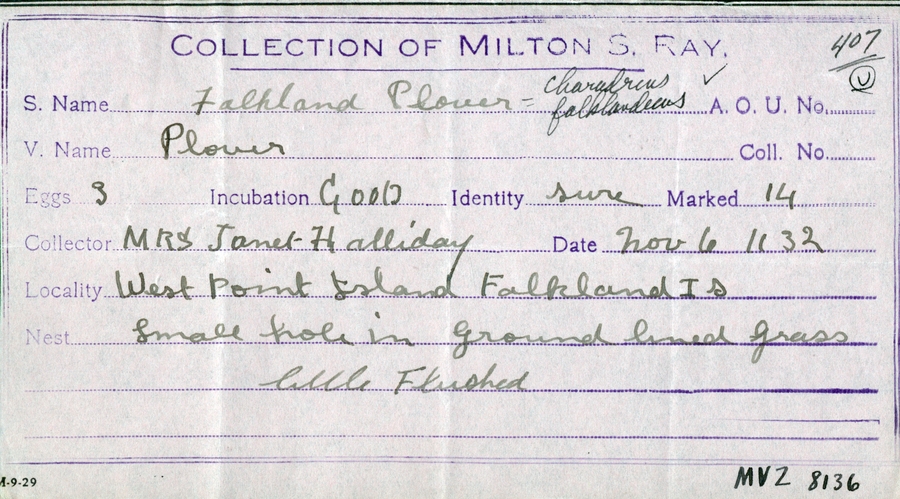 COLLECTION OF MILTON S. RAY.
407
U
S. Name Falkland Plover = Charadrius falklandicus ✓ A. O. U. No.
V. Name Plover Coll. No.
Eggs 3 Incubation Good Identity sure Marked 14
Collector MRS Janet Halliday Date Nov 6 1132
Locality West Point Island Falkland Is
Nest Small hole in Ground lined grass
little Flushed
M-9-29
MVZ 8136